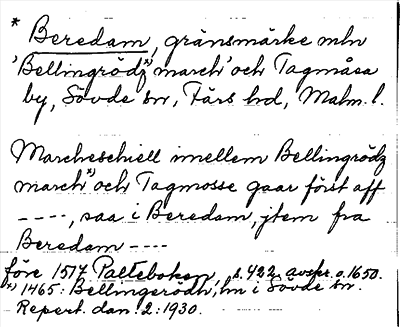 * Beredam, gränsmärke mln
'Bellingrödz*) march' och Tagmåsa
by, Sövde sn, Färs hd, Malm. l.
Marcheschiell imellem Bellingrödz
march*) och Tagmosse gaar först aff
----, saa i Beredam, jtem fra
Beredam ----
före 1517 Palteboken, s. 422, avskr. o. 1650.
*) 1465: Bellingerödh, hn i Sövde sn.
Repert. dan. 2: 1930.